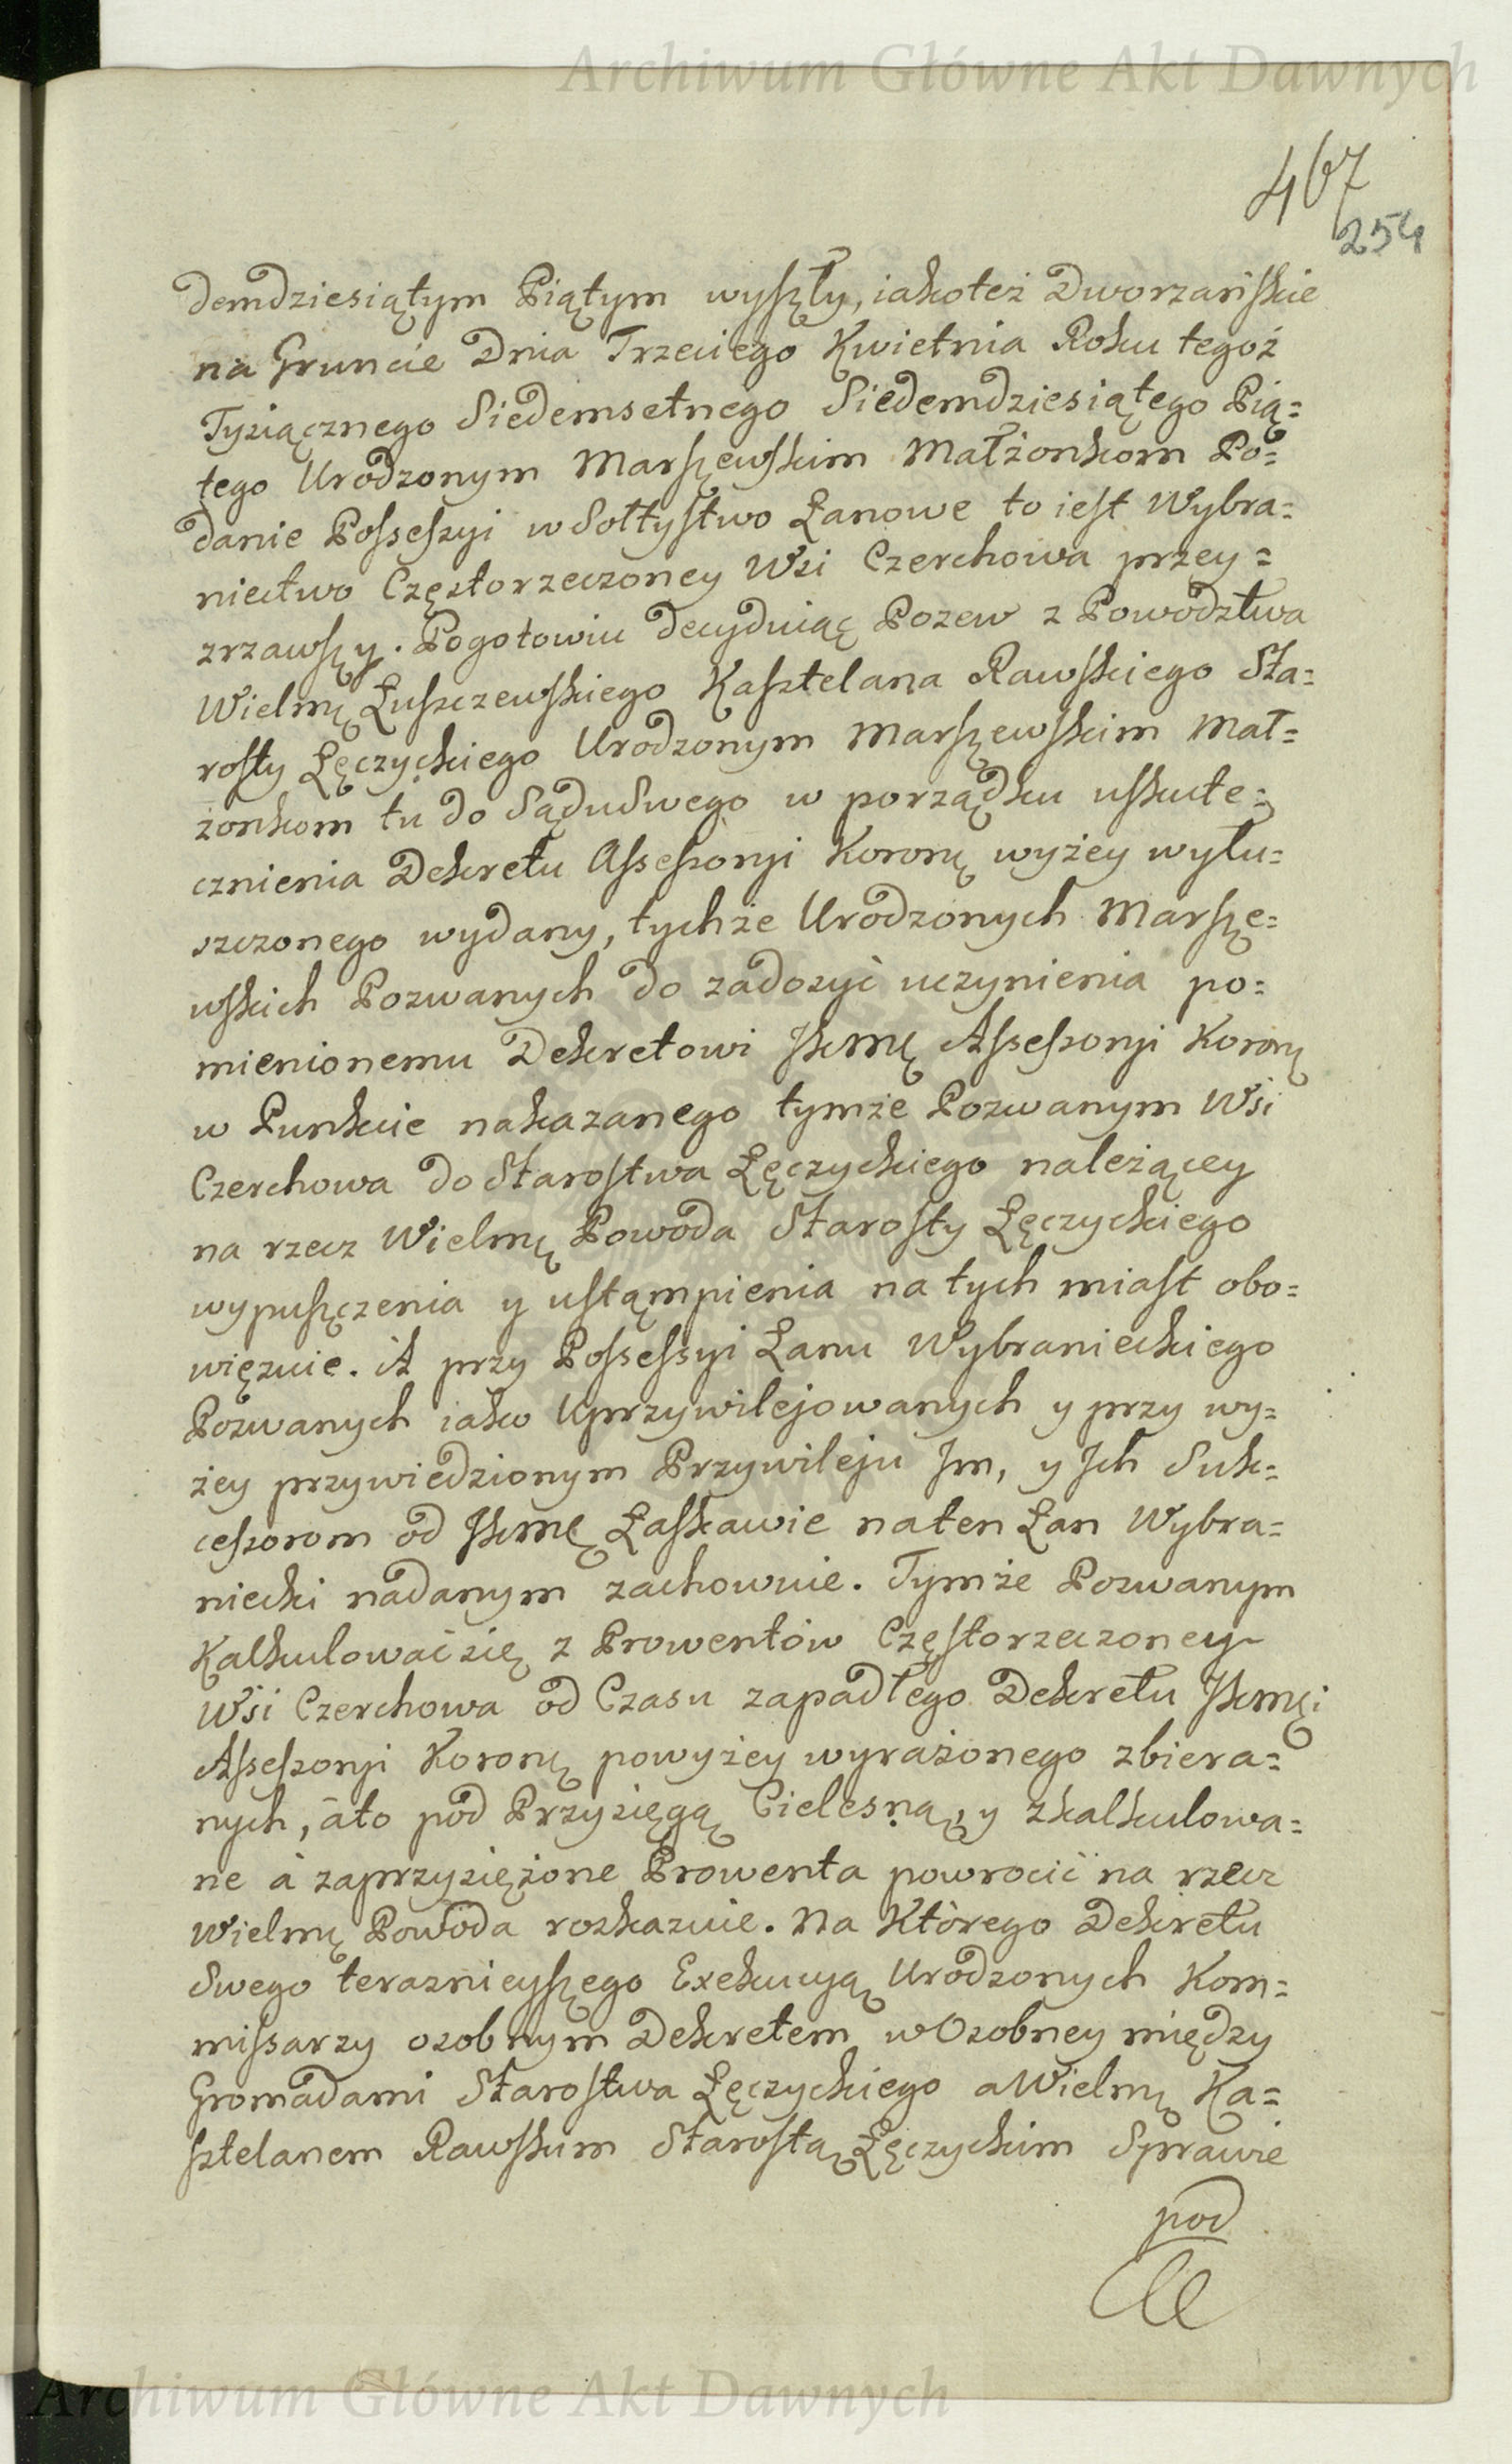 Archiwum Główne Akt Dawnych
467
254
demdziesiątym Piątym wyszły, iakoteż Dworzańskie
na Gruncie Dnia Trzeciego Kwietnia Roku tegoż
Tysiącznego Siedemsetnego Siedemdziesiątego Pią=
tego Urodzonym Marszewskim Małżonkom Po=
danie Possessyi w Sołtystwo Łanowe to iest Wybra=
niectwo Częstorzeczoney Wsi Czerchowa przey=
zrzawszy. Pogotowiu decyduiąc Pozew z Powodztwa
Wielmę Łuszczewskiego Kasztelana Rawskiego Sta=
rosty Łęczyckiego Urodzonym Marszewskim Mał=
żonkom tu do Sądu Swego w porządku uskute=
cznienia Dekretu Assessoryi Koronę wyżey wyłu=
szczonego wydany, tychże Urodzonych Marsze=
wskich Pozwanych do zadosyć uczynienia po=
mienionemu Dekretowi JKmę Assessoryi Koronę
w Punkcie nakazanego tymże Pozwanym Wsi
Czerchowa do Starostwa Łęczyckiego należącey
na rzecz Wielmę Powoda Starosty Łęczyckiego
wypuszczenia y ustąmpienia na tych miast obo=
więzuie. A przy Possessyi Łanu Wybranieckiego
Pozwanych iako Uprzywilejowanych y przy wy=
żey przywiedzionym Przywileju Im, y Ich Suk=
cessorom od JKmę Łaskawie na ten Łan Wybra=
niecki nadanym zachowuie. Tymże Pozwanym
Kalkulować się z Prowentów Częstorzeczoney
Wsi Czerchowa od Czasu zapadłego Dekretu JKmęi
Assessoryi Koronę powyżey wyrażonego zbiera=
nych, á to pod Przysięgą Cielesną, y zkalkulowa=
ne á zaprzysiężone Prowenta powrocić na rzecz
Wielmę Powoda rozkazuie. Na Którego Dekretu
Swego teraznieyszego Exekucyą Urodzonych Kom=
missarzy osobnym Dekretem w Osobney między
Gromadami Starostwa Łęczyckiego a Wielmę Ka=
sztelanem Rawskim Starostą Łęczyckim Sprawie
pod
Archiwum Główne Akt Dawnych